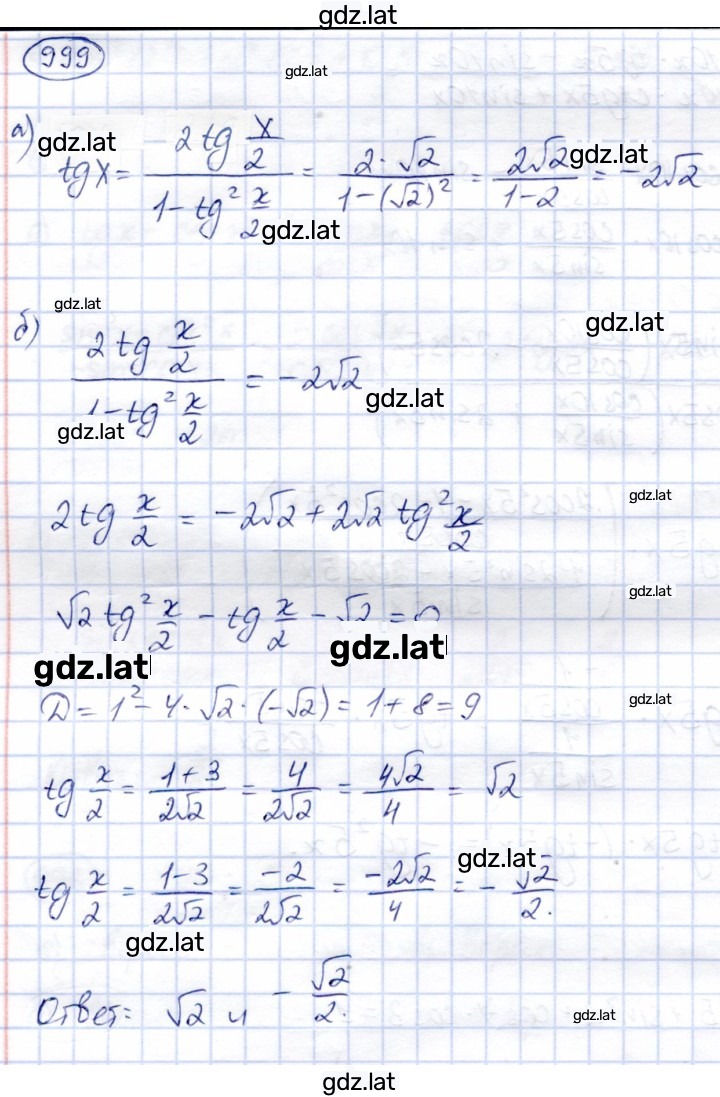 gdz.lat
999
gdz.lat
а) gdz.lat
tg x = 2 tg x/2 / 1 - tg² x/2 = 2·√2 / 1-(√2)² = 2√2 / 1-2 = -2√2
gdz.lat
gdz.lat
gdz.lat
gdz.lat
б) 2 tg x/2 / 1 - tg² x/2 = -2√2
gdz.lat
gdz.lat
2 tg x/2 = -2√2 + 2√2 tg² x/2
gdz.lat
√2 tg² x/2 - tg x/2 - √2 = 0
gdz.lat
gdz.lat
gdz.lat
D = 1² - 4·√2·(-√2) = 1 + 8 = 9
gdz.lat
tg x/2 = 1+3 / 2√2 = 4 / 2√2 = 4√2 / 4 = √2
tg x/2 = 1-3 / 2√2 = -2 / 2√2 = -2√2 / 4 = - √2 / 2.
gdz.lat
gdz.lat
Ответ: √2 и - √2 / 2.
gdz.lat
gdz.lat